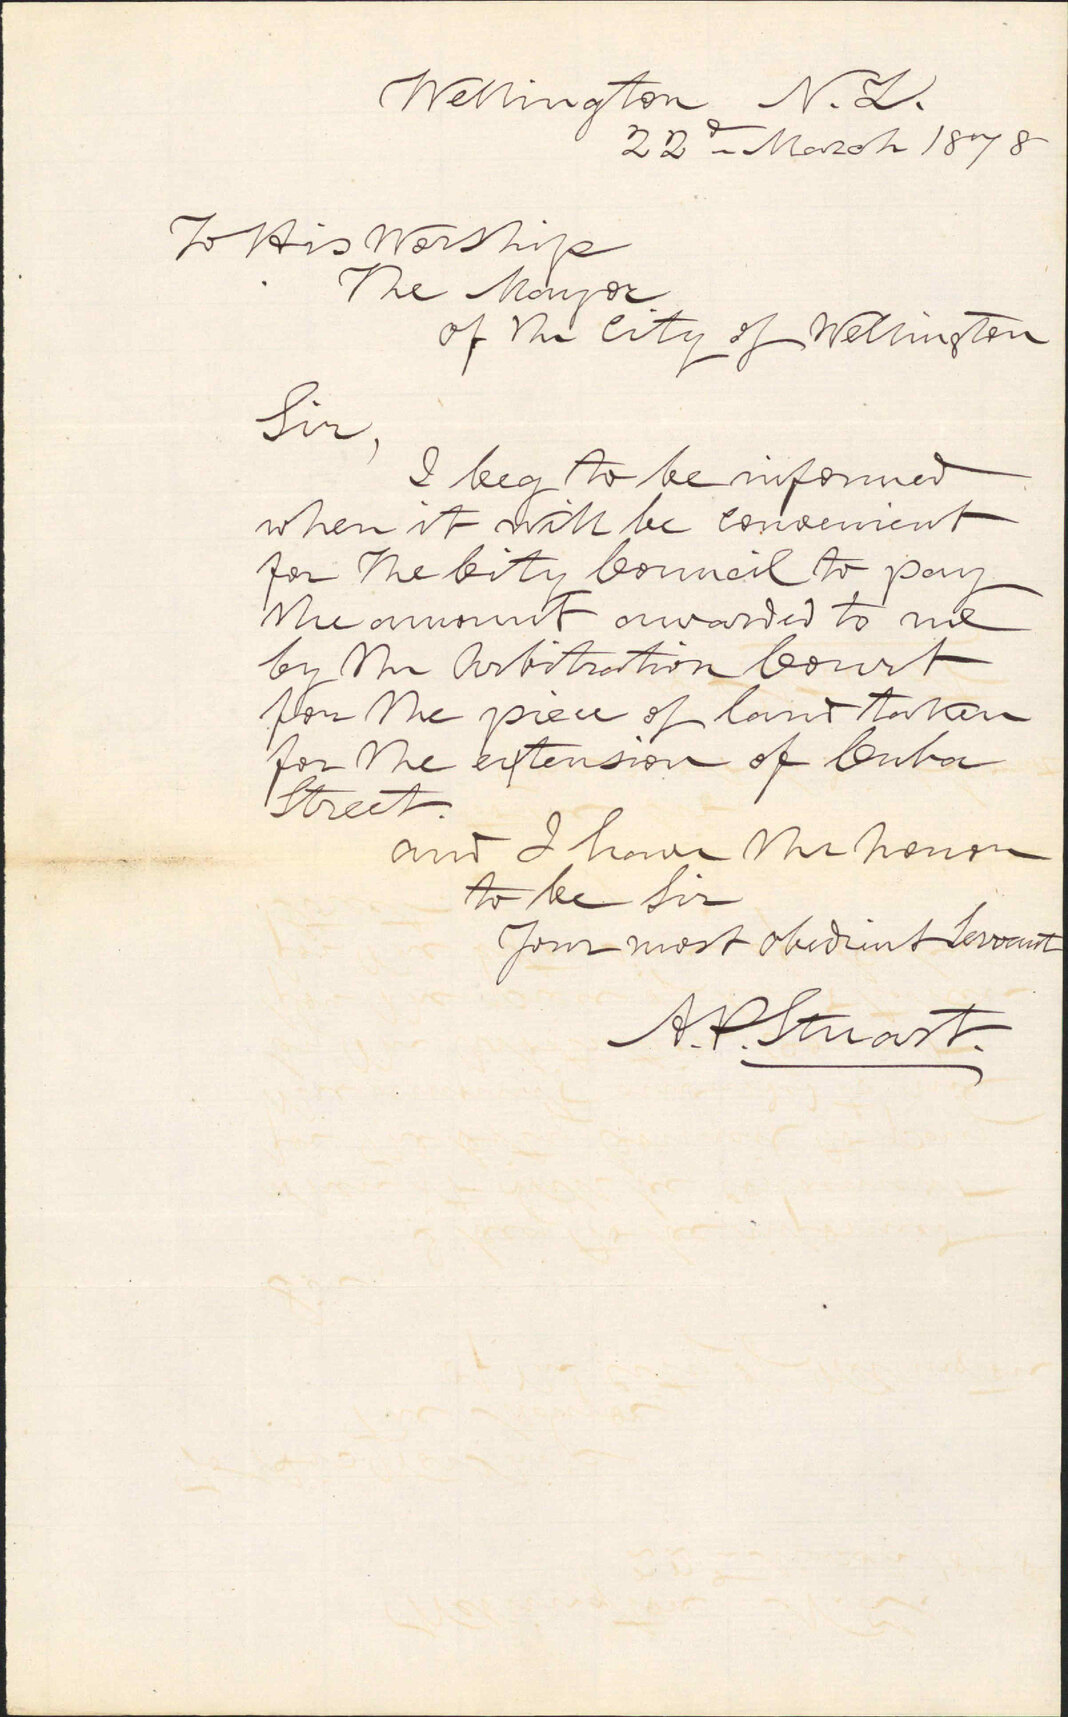 Wellington N.Z.
22d March 1878
To His Worship
The Mayor
of the City of Wellington
Sir,
I beg to be informed
when it will be convenient
for the City Council to pay
the amount awarded to me
by the Arbitration Court
for the piece of land taken
for the extension of Cuba
Street.
and I have the honor
to be Sir
Your most obedient Servant
A.P. Stuart.